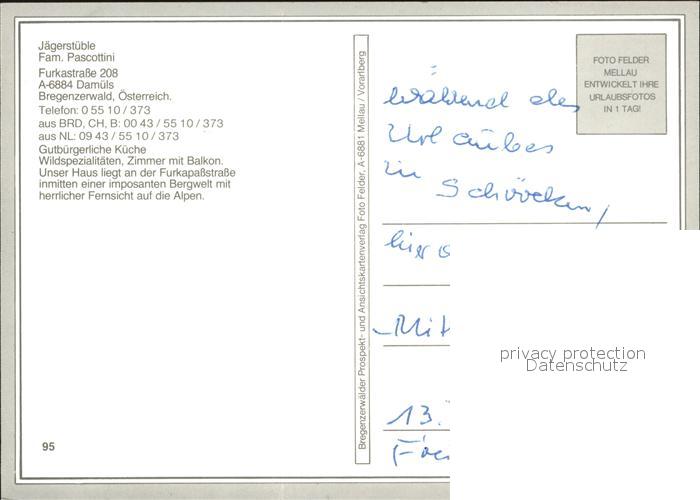 Jägerstüble
Fam. Pascottini
Furkastraße 208
A-6884 Damüls
Bregenzerwald, Österreich.
Telefon: 0 55 10 / 373
aus BRD, CH, B: 00 43 / 55 10 / 373
aus NL: 09 43 / 55 10 / 373
Gutbürgerliche Küche
Wildspezialitäten, Zimmer mit Balkon.
Unser Haus liegt an der Furkapaßstraße
inmitten einer imposanten Bergwelt mit
herrlicher Fernsicht auf die Alpen.
95
Bregenzerwälder Prospekt- und Ansichtskartenverlag Foto Felder, A-6881 Mellau / Vorarlberg
FOTO FELDER
MELLAU
ENTWICKELT IHRE
URLAUBSFOTOS
IN 1 TAG!
während des
Urlaubes
in Schröcken,
hier
Mit
13.
privacy protection
Datenschutz